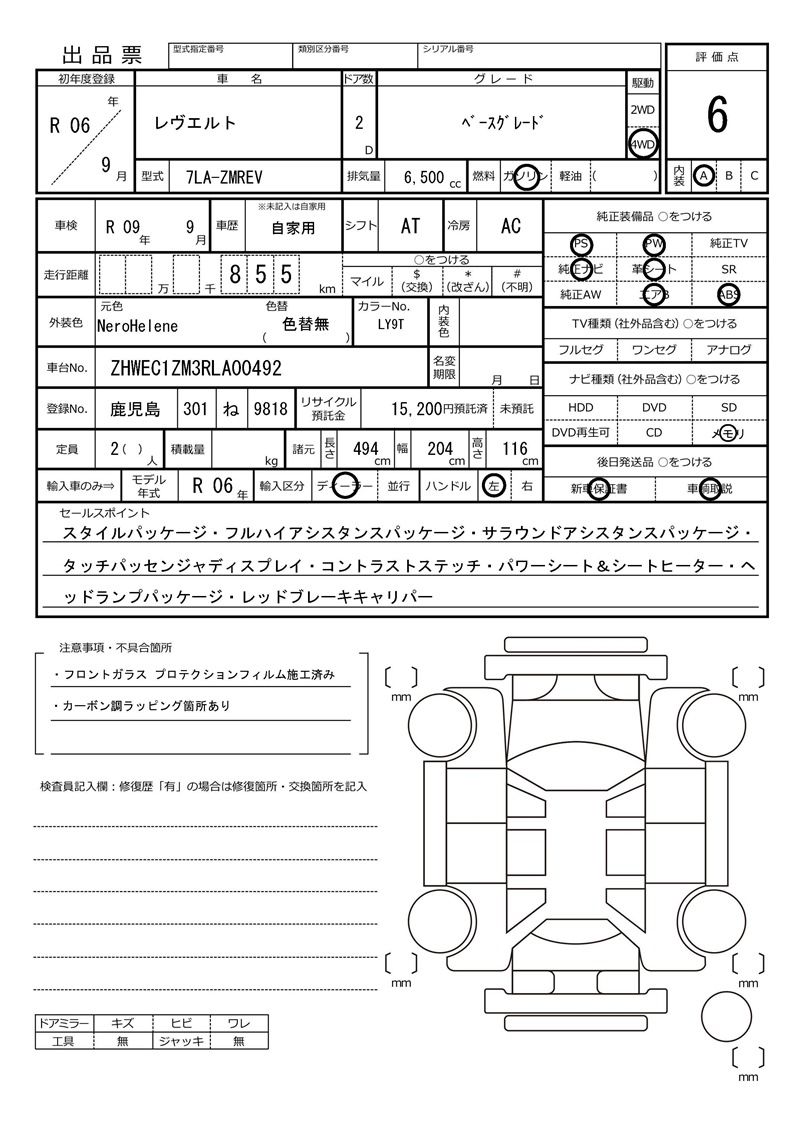 出品票 型式指定番号 類別区分番号 シリアル番号
評価点
6
初年度登録 車名 ドア数 グレード 駆動
R 06 年 9 月 レヴエルト 2 D ﾍﾞｰｽｸﾞﾚｰﾄﾞ 2WD 4WD
型式 7LA-ZMREV 排気量 6,500 cc 燃料 ガソリン 軽油 ( ) 内装 A B C
車検 R 09 年 9 月 車歴 ※未記入は自家用 自家用 シフト AT 冷房 AC
走行距離 万 千 855 km ○をつける
マイル $ (交換) * (改ざん) # (不明)
外装色 元色 NeroHelene 色替 ( 色替無 ) カラーNo. LY9T 内装色
車台No. ZHWEC1ZM3RLA00492 名変期限 月 日
登録No. 鹿児島 301 ね 9818 リサイクル預託金 15,200円預託済 未預託
定員 2 ( ) 人 積載量 kg 諸元 長さ 494 cm 幅 204 cm 高さ 116 cm
輸入車のみ⇒ モデル年式 R 06 年 輸入区分 ディーラー 並行 ハンドル 左 右
純正装備品 ○をつける
PS PW 純正TV
純正ナビ 革シート SR
純正AW エアB ABS
TV種類 (社外品含む) ○をつける
フルセグ ワンセグ アナログ
ナビ種類 (社外品含む) ○をつける
HDD DVD SD
DVD再生可 CD メモリ
後日発送品 ○をつける
新車保証書 車輌取説
セールスポイント
スタイルパッケージ・フルハイアシスタンスパッケージ・サラウンドアシスタンスパッケージ・
タッチパッセンジャディスプレイ・コントラストステッチ・パワーシート＆シートヒーター・ヘ
ッドランプパッケージ・レッドブレーキキャリパー
注意事項・不具合箇所
・フロントガラス プロテクションフィルム施工済み
・カーボン調ラッピング箇所あり
検査員記入欄：修復歴「有」の場合は修復箇所・交換箇所を記入
〔 〕 mm
〔 〕 mm
〔 〕 mm
〔 〕 mm
〔 〕 mm
ドアミラー キズ ヒビ ワレ
工具 無 ジャッキ 無